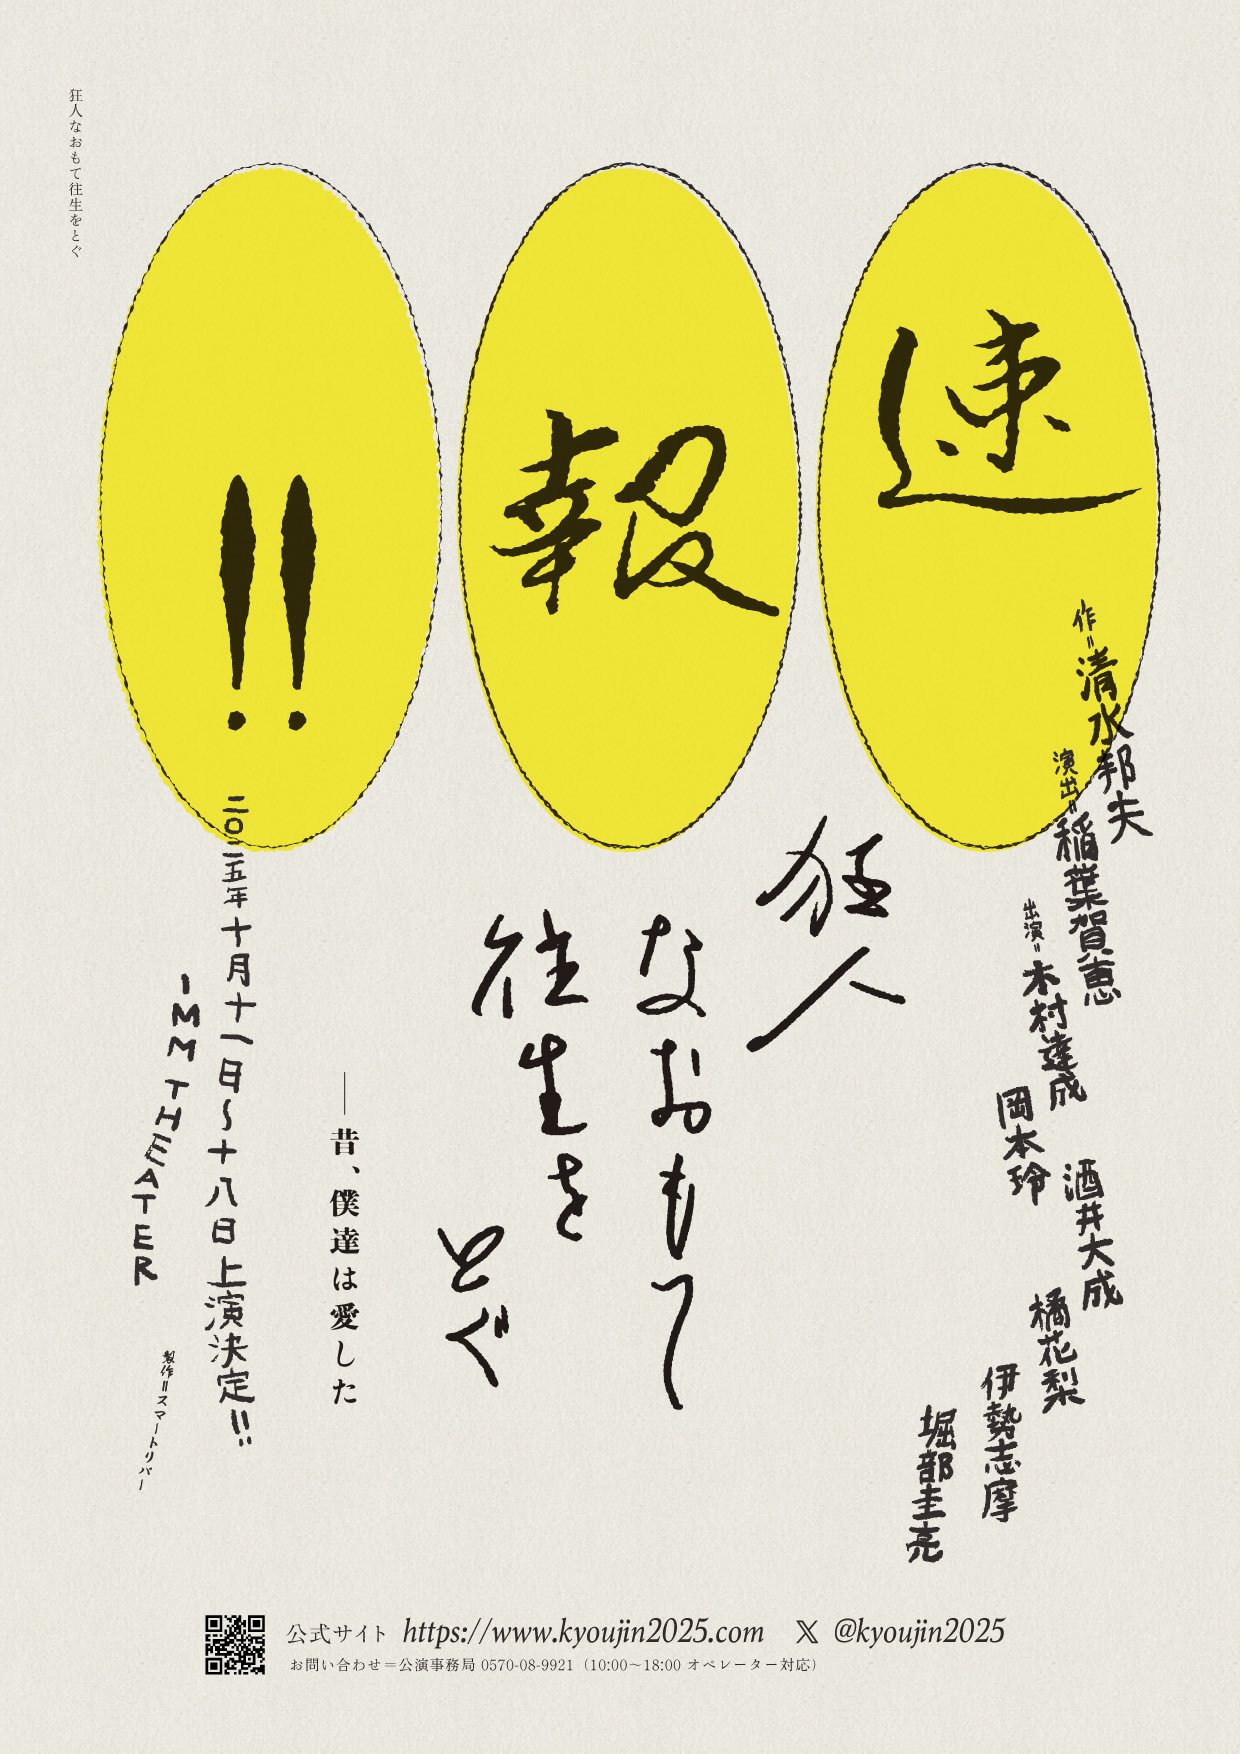 狂人なおもて往生をとぐ
速
報
!!
作＝清水邦夫
演出＝稲葉賀恵
出演＝木村達成
岡本玲
酒井大成
橘花梨
伊勢志摩
堀部圭亮
狂人
なおもて
往生を
とぐ
――昔、僕達は愛した
二〇二五年十月十一日〜十八日上演決定!!
IMM THEATER
製作＝スマートリバー
公式サイト https://www.kyoujin2025.com X @kyoujin2025
お問い合わせ＝公演事務局 0570-08-9921（10:00〜18:00 オペレーター対応）